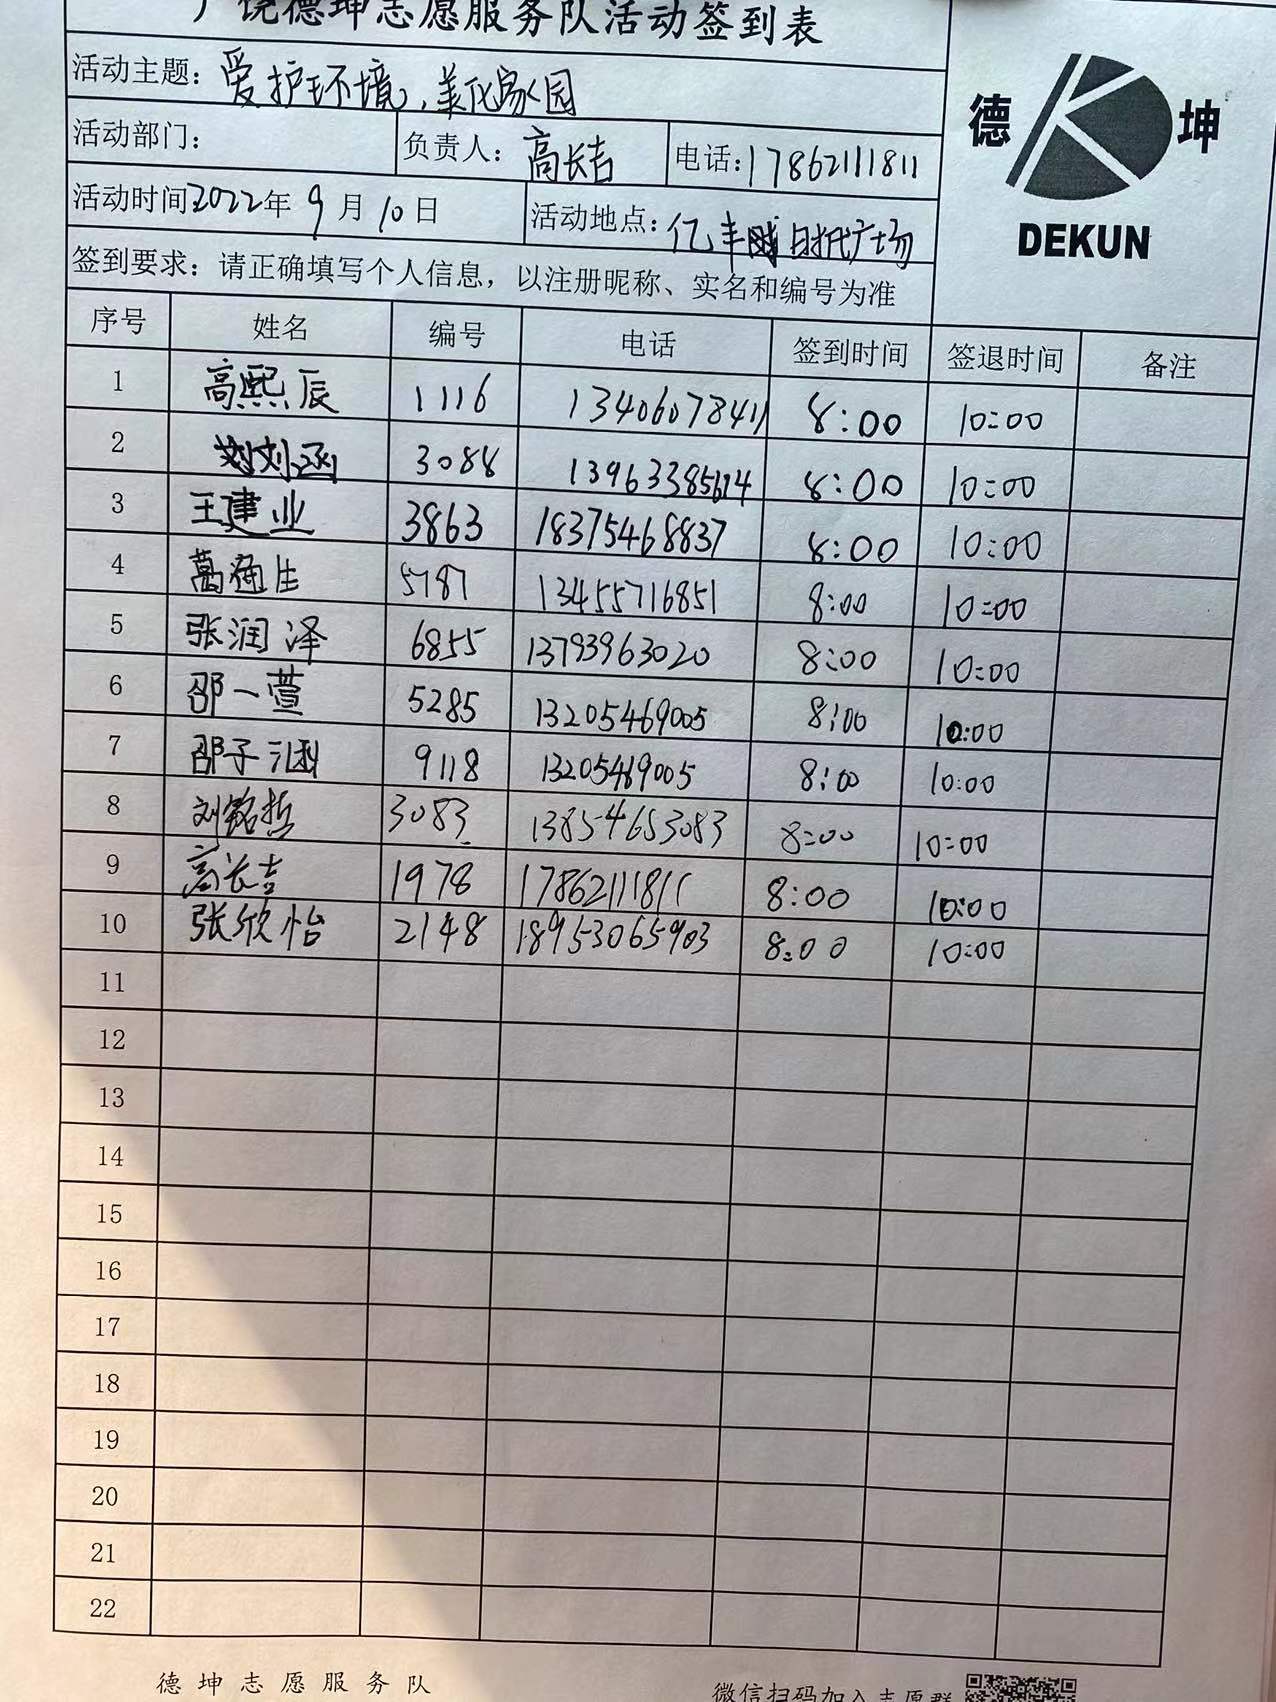 广饶德坤志愿服务队活动签到表
活动主题：爱护环境，美化家园
德 坤
DEKUN
活动部门： 负责人：高长吉 电话：17862111811
活动时间2022年9月10日 活动地点：亿丰时代广场
签到要求：请正确填写个人信息，以注册昵称、实名和编号为准
序号 姓名 编号 电话 签到时间 签退时间 备注
1 高熙辰 1116 13406078411 8:00 10:00
2 刘涵 3088 13963385614 8:00 10:00
3 王建业 3863 18375468837 8:00 10:00
4 5787 13455716851 8:00 10:00
5 张润泽 6855 13793963020 8:00 10:00
6 邵一萱 5285 13205469005 8:00 10:00
7 邵子涵 9118 13205469005 8:00 10:00
8 刘铭哲 3083 13854653083 8:00 10:00
9 高长吉 1978 17862111811 8:00 10:00
10 张欣怡 2148 18953065903 8:00 10:00
11
12
13
14
15
16
17
18
19
20
21
22
德坤志愿服务队 微信扫码加入志愿群